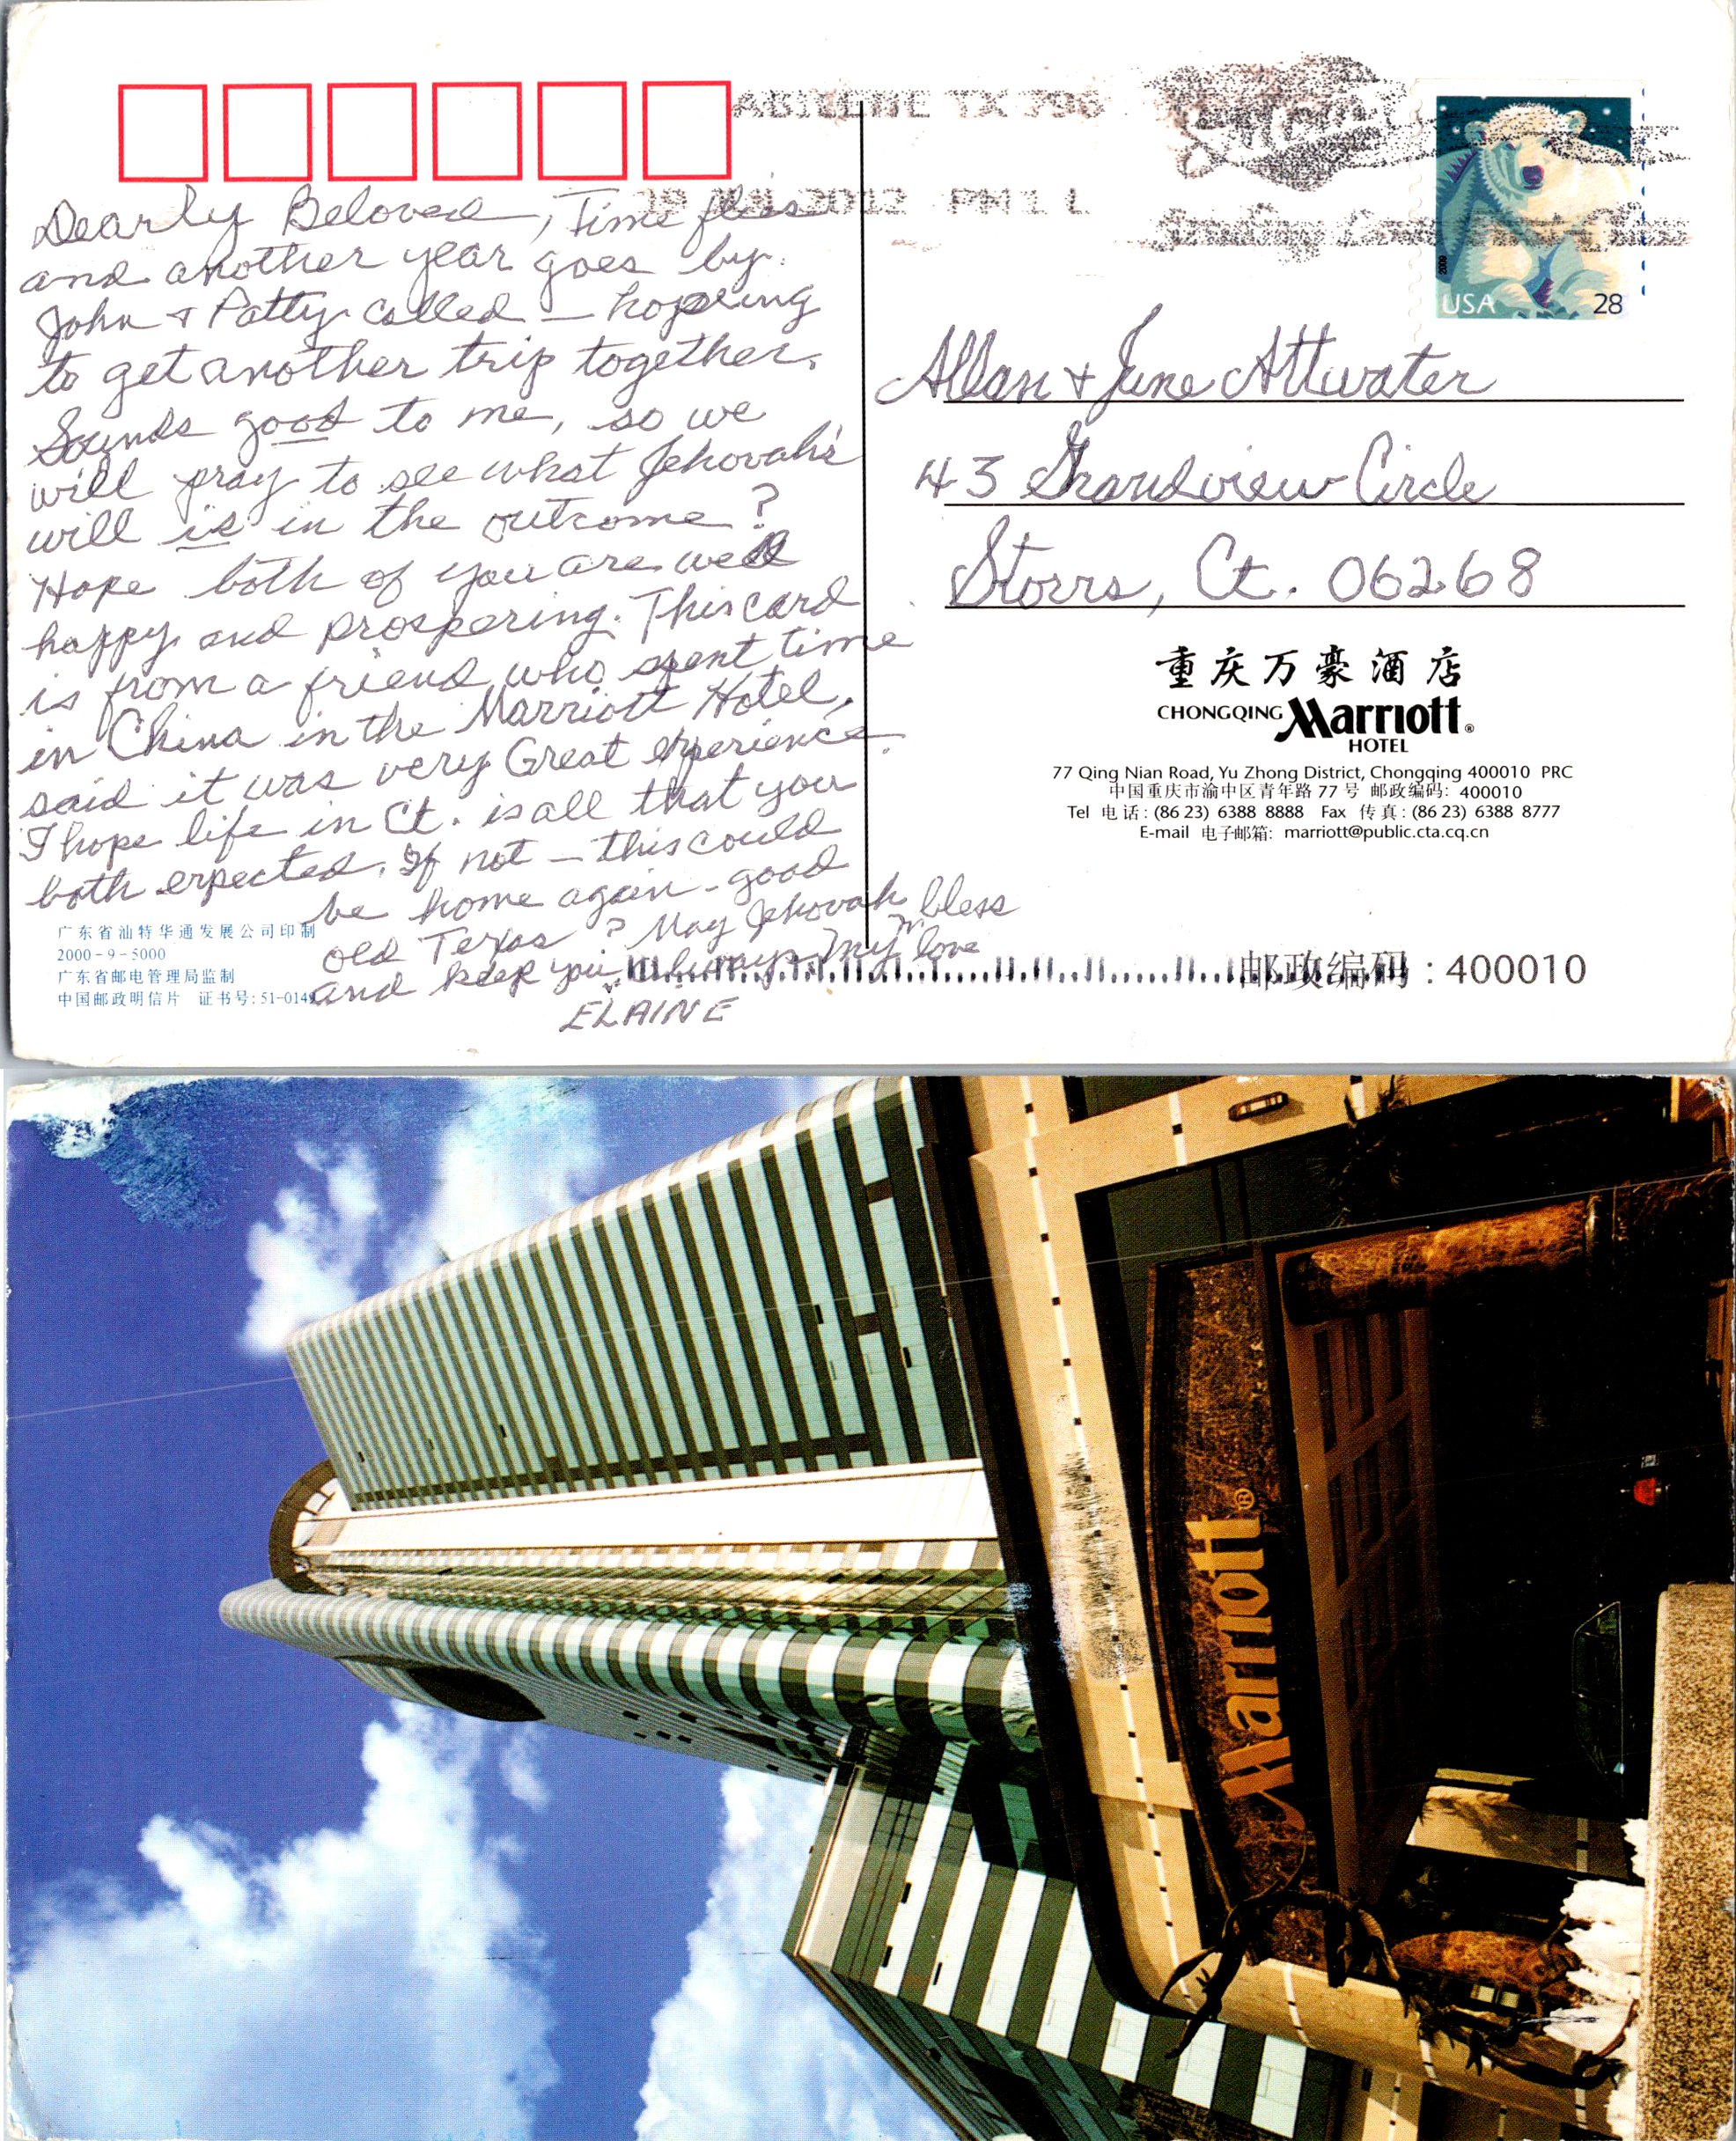 ABILENE TX 796
2012 PM 1 L
USA
28
2009
Dearly Beloved, Time flies
and another year goes by.
John + Patty called – hopeing
to get another trip together.
Sounds good to me, so we
will pray to see what Jehovah's
will is in the outcome?
Hope both of you are well
happy and prospering. This card
is from a friend who spent time
in China in the Marriott Hotel,
said it was very Great experience.
I hope life in Ct. is all that you
both expected. If not – this could
be home again – good
old Texas? May Jehovah bless
and keep you, always my love
ELAINE
Allan + June Attwater
43 Grandview Circle
Storrs, Ct. 06268
重庆万豪酒店
CHONGQING Marriott®
HOTEL
77 Qing Nian Road, Yu Zhong District, Chongqing 400010 PRC
中国重庆市渝中区青年路 77 号 邮政编码: 400010
Tel 电话: (86 23) 6388 8888 Fax 传真: (86 23) 6388 8777
E-mail 电子邮箱: marriott@public.cta.cq.cn
广东省汕特华通发展公司印制
2000-9-5000
广东省邮电管理局监制
中国邮政明信片 证书号: 51-0149
邮政编码: 400010
Marriott®